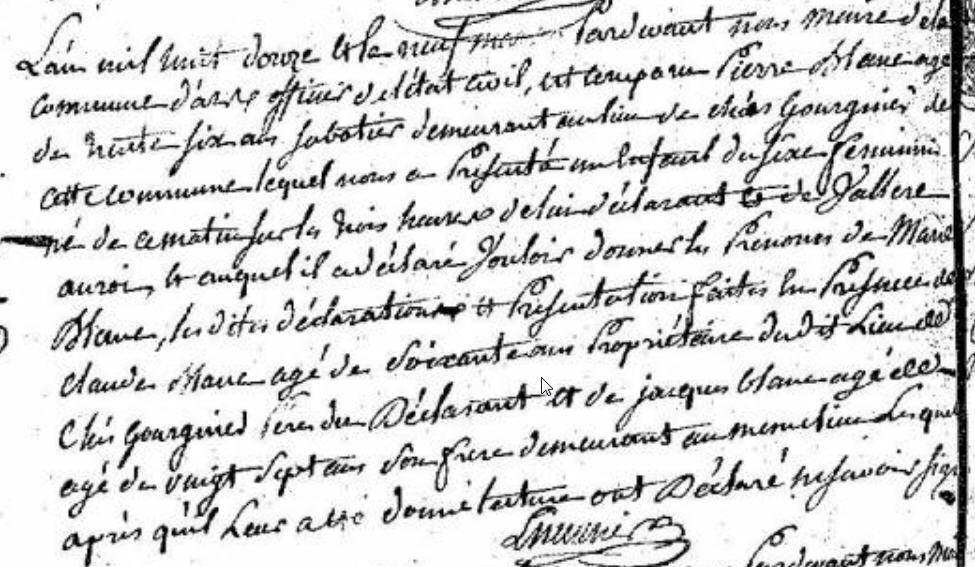 L'an mil huit douze et le neuf mars Pardevant nous maire de la
commune d'arx officier de l'état civil, est comparu Pierre Blanc agé
de trente six ans sabotier demeurant au lieu de chés Gourgniés de
cette commune lequel nous a Présenté un Enfant du sixe féminin
né de ce matin sur les trois heures de lui déclarant et de
et auquel il a déclaré Vouloir donner les Prenoms de Marie
Blanc, les dites déclarations et Présentation faites En Présence de
claude Blanc agé de Soixante ans Propriétaire du dit Lieu de
Chés Gourgnied Père du Déclarant et de jacques blanc agé de
agé de vaingt Sept ans Son frere demeurant au meme lieu Lesquel
après qu'il Leur a été donné lecture ont Déclaré ne savoir sig
Pardevant nous